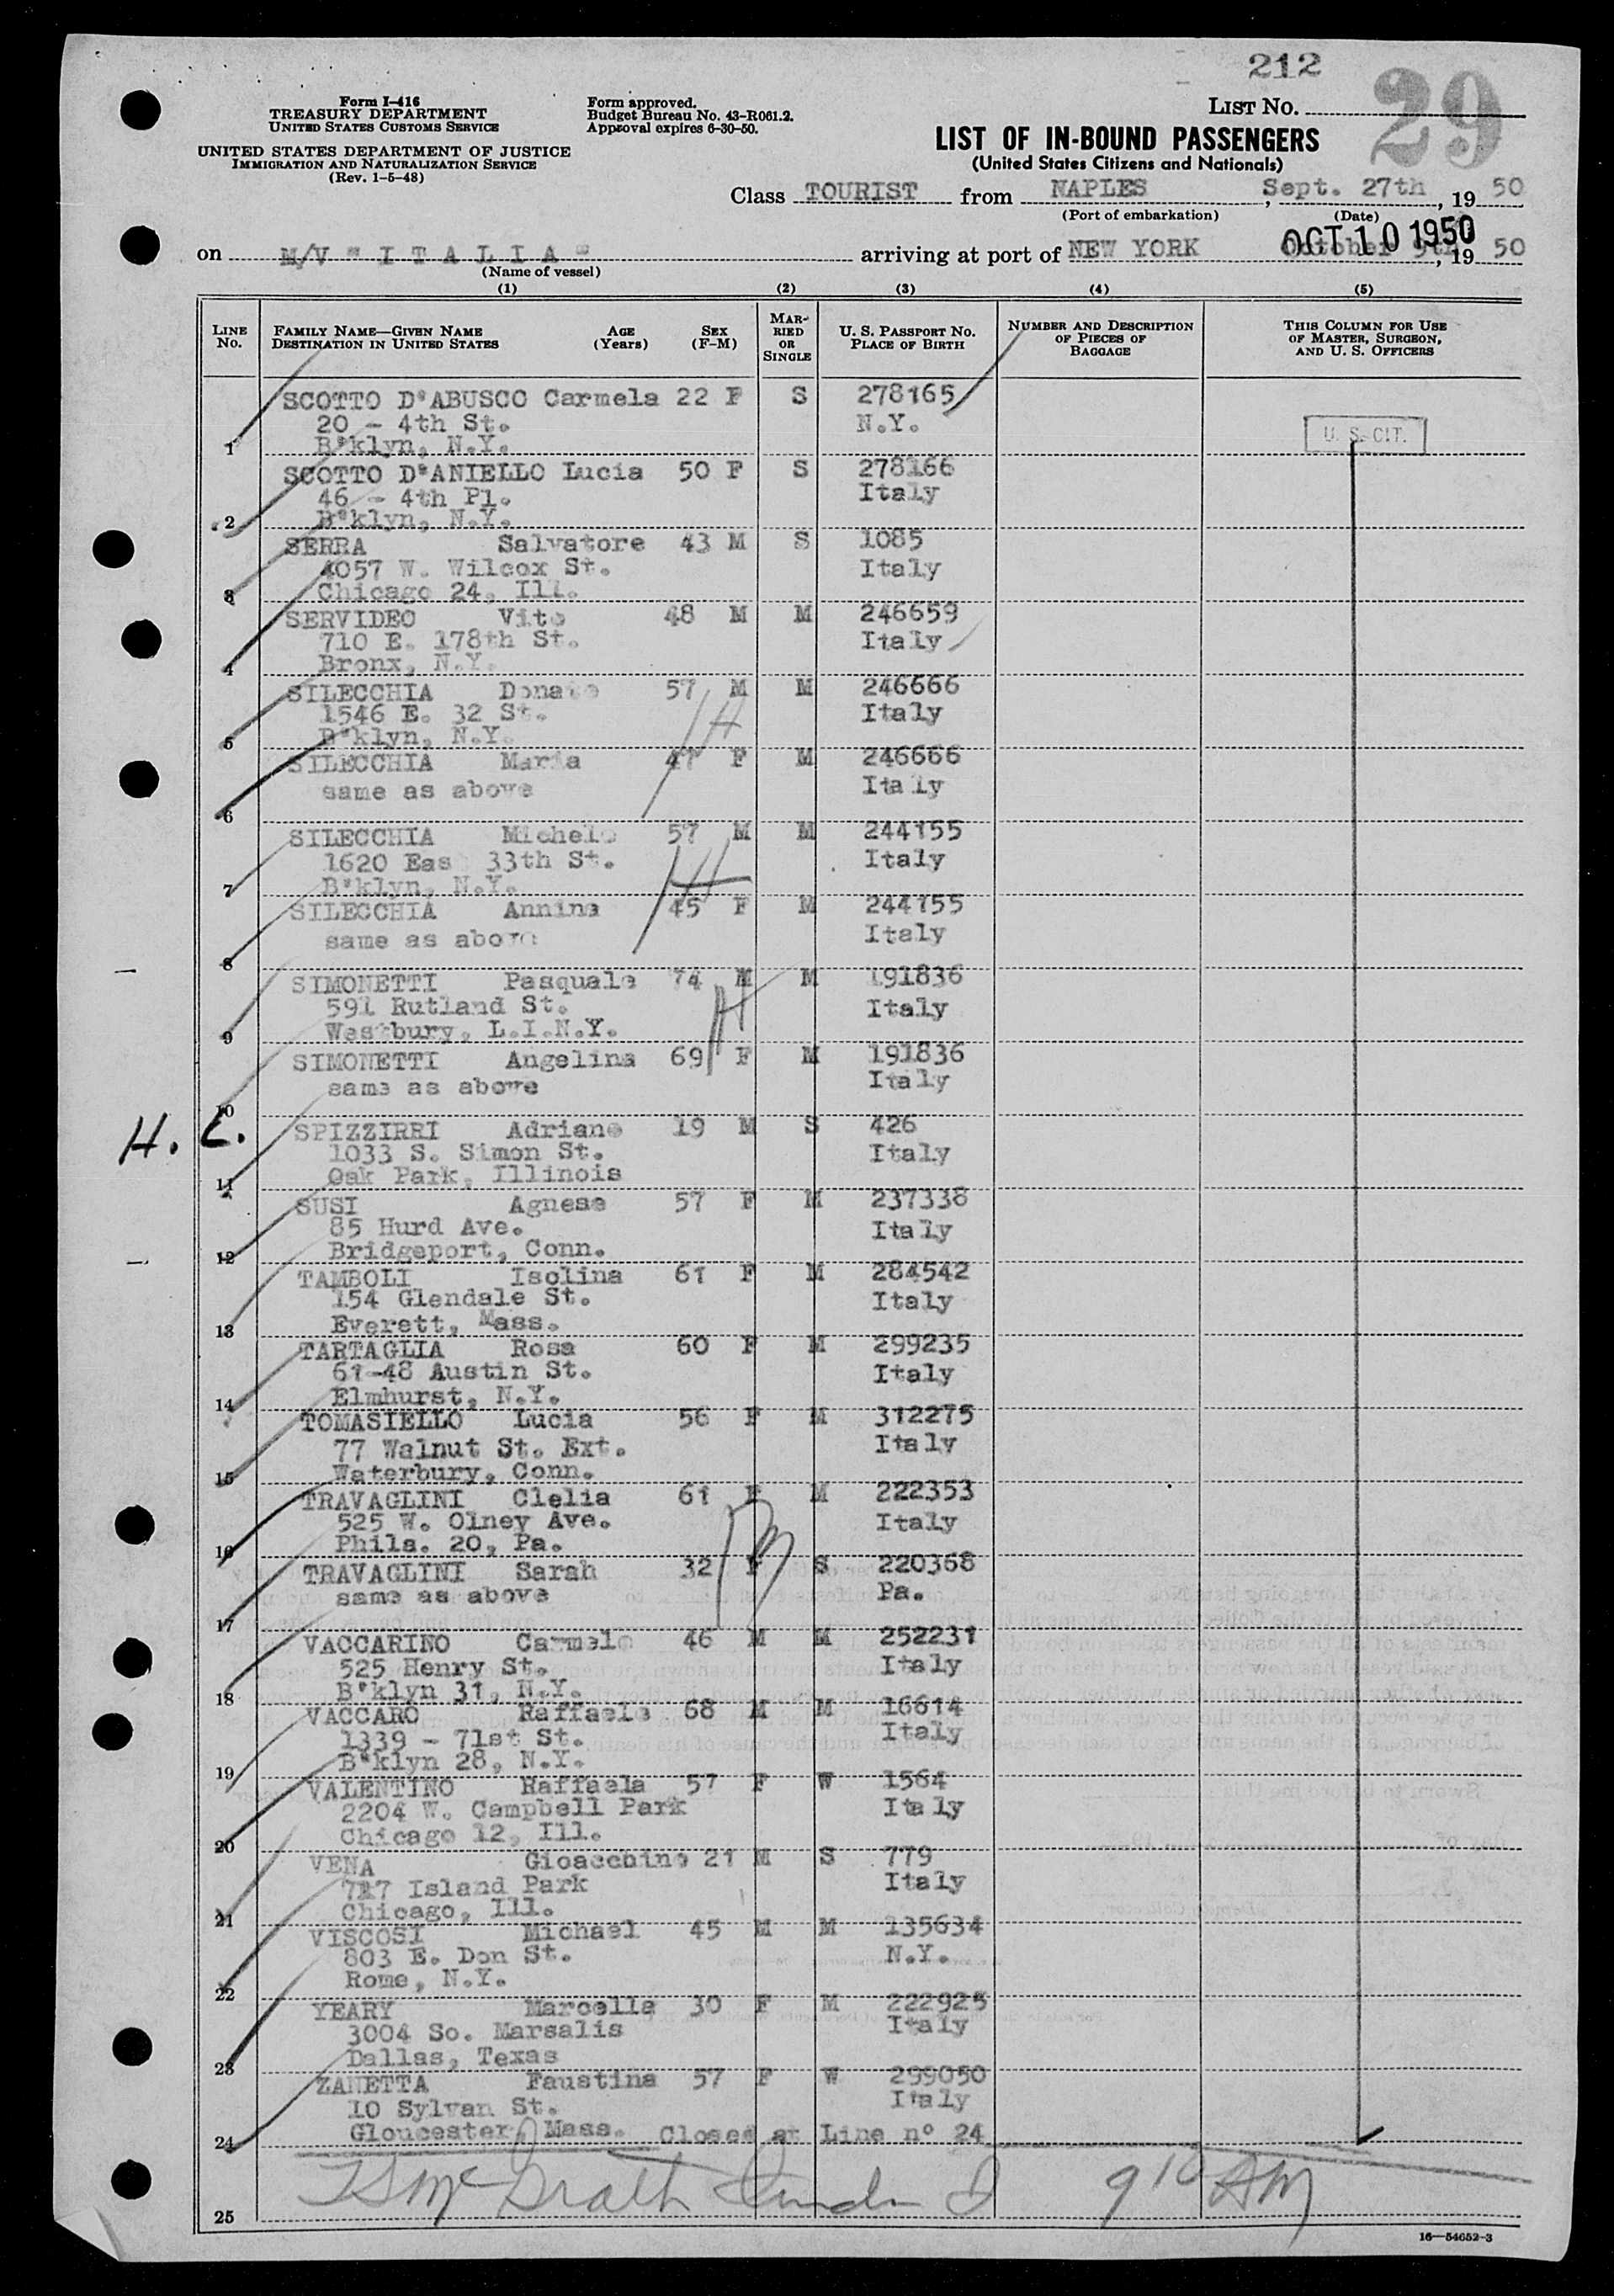 212
29
Form I-416
TREASURY DEPARTMENT
UNITED STATES CUSTOMS SERVICE
UNITED STATES DEPARTMENT OF JUSTICE
IMMIGRATION AND NATURALIZATION SERVICE
(Rev. 1-5-48)
Form approved.
Budget Bureau No. 43-R061.2.
Approval expires 6-30-50.
LIST NO.
LIST OF IN-BOUND PASSENGERS
(United States Citizens and Nationals)
Class TOURIST from NAPLES, Sept. 27th, 19 50
(Port of embarkation) (Date)
OCT 10 1950
on M/V "ITALIA" arriving at port of NEW YORK October 9th, 19 50
(Name of vessel)
(1) (2) (3) (4) (5)
LINE NO.
FAMILY NAME—GIVEN NAME DESTINATION IN UNITED STATES
AGE (Years)
SEX (F-M)
MARRIED OR SINGLE
U. S. PASSPORT NO. PLACE OF BIRTH
NUMBER AND DESCRIPTION OF PIECES OF BAGGAGE
THIS COLUMN FOR USE OF MASTER, SURGEON, AND U. S. OFFICERS
SCOTTO D'ABUSCO Carmela 22 F S 278165
20 - 4th St. N.Y.
1 B'klyn, N.Y. U. S. CIT.
SCOTTO D'ANIELLO Lucia 50 F S 278166
46 - 4th Pl. Italy
2 B'klyn, N.Y.
SERRA Salvatore 43 M S 1085
4057 W. Wilcox St. Italy
3 Chicago 24, Ill.
SERVIDEO Vito 48 M M 246659
710 E. 178th St. Italy
4 Bronx, N.Y.
SILECCHIA Donato 57 M M 246666
1546 E. 32 St. Italy
5 B'klyn, N.Y.
SILECCHIA Maria 47 F M 246666
same as above Italy
6
SILECCHIA Michele 57 M M 244155
1620 Eas 33th St. Italy
7 B'klyn, N.Y.
SILECCHIA Annina 45 F M 244155
same as above Italy
8
SIMONETTI Pasquale 74 M M 191836
591 Rutland St. Italy
9 Westbury, L.I.N.Y.
SIMONETTI Angelina 69 F M 191836
same as above Italy
10
H. C.
SPIZZIRRI Adriano 19 M S 426
1033 S. Simon St. Italy
11 Oak Park, Illinois
SUSI Agnese 57 F M 237338
85 Hurd Ave. Italy
12 Bridgeport, Conn.
TAMBOLI Isolina 61 F M 284542
154 Glendale St. Italy
13 Everett, Mass.
TARTAGLIA Rosa 60 F M 299235
61-48 Austin St. Italy
14 Elmhurst, N.Y.
TOMASIELLO Lucia 56 F M 312275
77 Walnut St. Ext. Italy
15 Waterbury, Conn.
TRAVAGLINI Clelia 61 F M 222353
525 W. Olney Ave. Italy
16 Phila. 20, Pa.
TRAVAGLINI Sarah 32 F S 220368
same as above Pa.
17
VACCARINO Carmelo 46 M M 252231
525 Henry St. Italy
18 B'klyn 31, N.Y.
VACCARO Raffaele 68 M M 16614
1339 - 71st St. Italy
19 B'klyn 28, N.Y.
VALENTINO Raffaela 57 F W 1564
2204 W. Campbell Park Italy
20 Chicago 12, Ill.
VENA Gioacchino 21 M S 779
717 Island Park Italy
21 Chicago, Ill.
VISCOSI Michael 45 M M 135634
803 E. Don St. N.Y.
22 Rome, N.Y.
YEARY Marcella 30 F M 222925
3004 So. Marsalis Italy
23 Dallas, Texas
ZANETTA Faustina 57 F W 299050
10 Sylvan St. Italy
24 Gloucester, Mass. Closed at Line n° 24
25 9 10 AM
16—54652-3